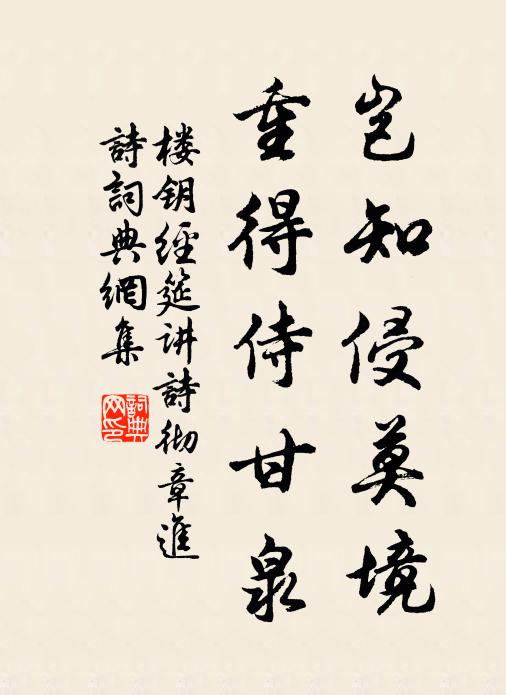 岂知侵莫境
重得侍甘泉
楼钥經筵讲詩彻章進
詩詞典網集
詞典網印